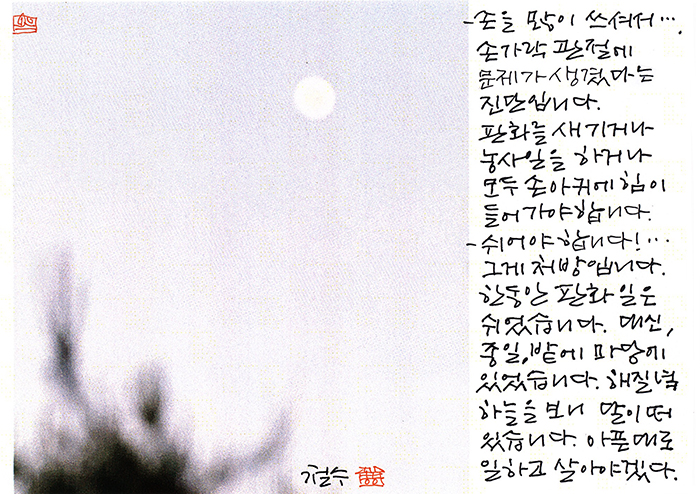 -손을 많이 쓰셔서….
손가락 관절에
문제가 생겼다는
진단입니다.
판화를 새기거나
농사일을 하거나
모두 손아귀에 힘이
들어가야합니다.
-쉬어야합니다!…
그게 처방입니다.
한동안 판화 일은
쉬었습니다. 대신,
종일, 밭에 마당에
있었습니다. 해질녘
하늘을 보니 달이 떠
있습니다. 아픈대로
일하고 살아야겠다.
이철수